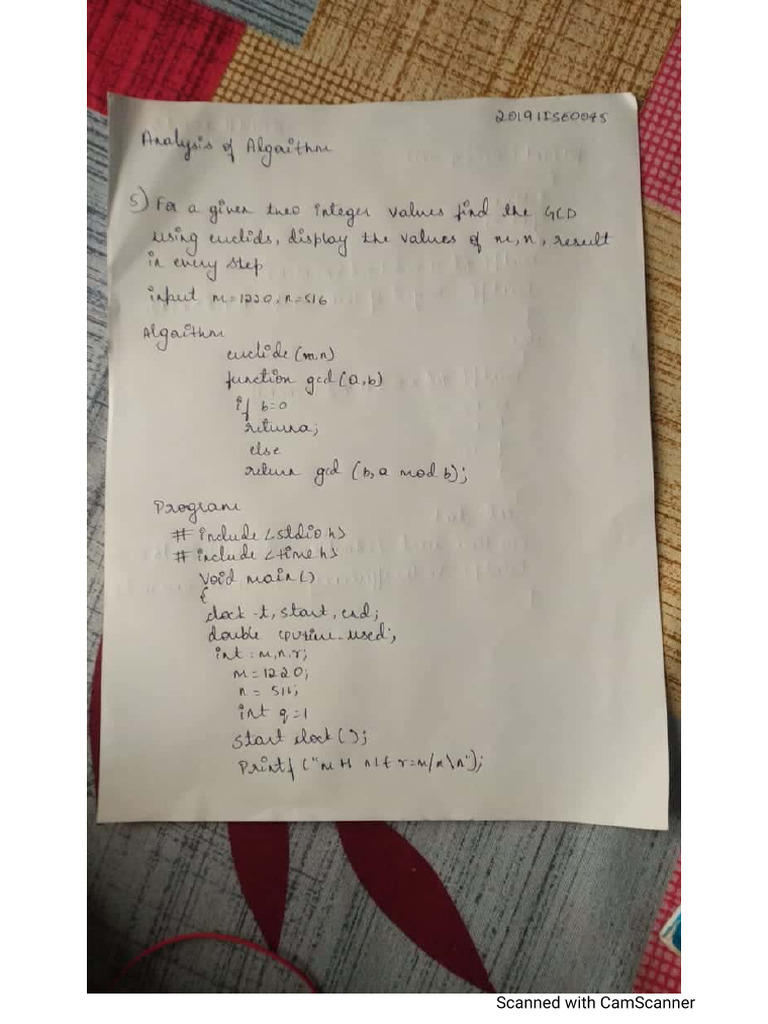 20191ISE0045
Analysis of Algorithm
5) For a given two integer values find the GCD
using euclids, display the values of m, n, result
in every step
input m=1220, n=516
Algorithm
euclide (m,n)
function gcd (a,b)
if b=0
return a;
else
return gcd (b, a mod b);
Program
# include <stdio.h>
# include <time.h>
void main()
{
clock -t, start, end;
double cputime-used;
int : m,n,r;
m=1220;
n = 516;
int q=1
start clock();
Printf ("m \t n \t r=m/n \n");
Scanned with CamScanner